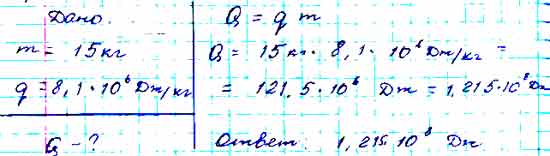 Дано.
m = 15кг
q = 8,1·10⁶ Дж/кг
Q - ?
Q = q m
Q = 15кг · 8,1 · 10⁶ Дж/кг =
= 121,5·10⁶ Дж = 1,215·10⁸ Дж
Ответ: 1,215·10⁸ Дж